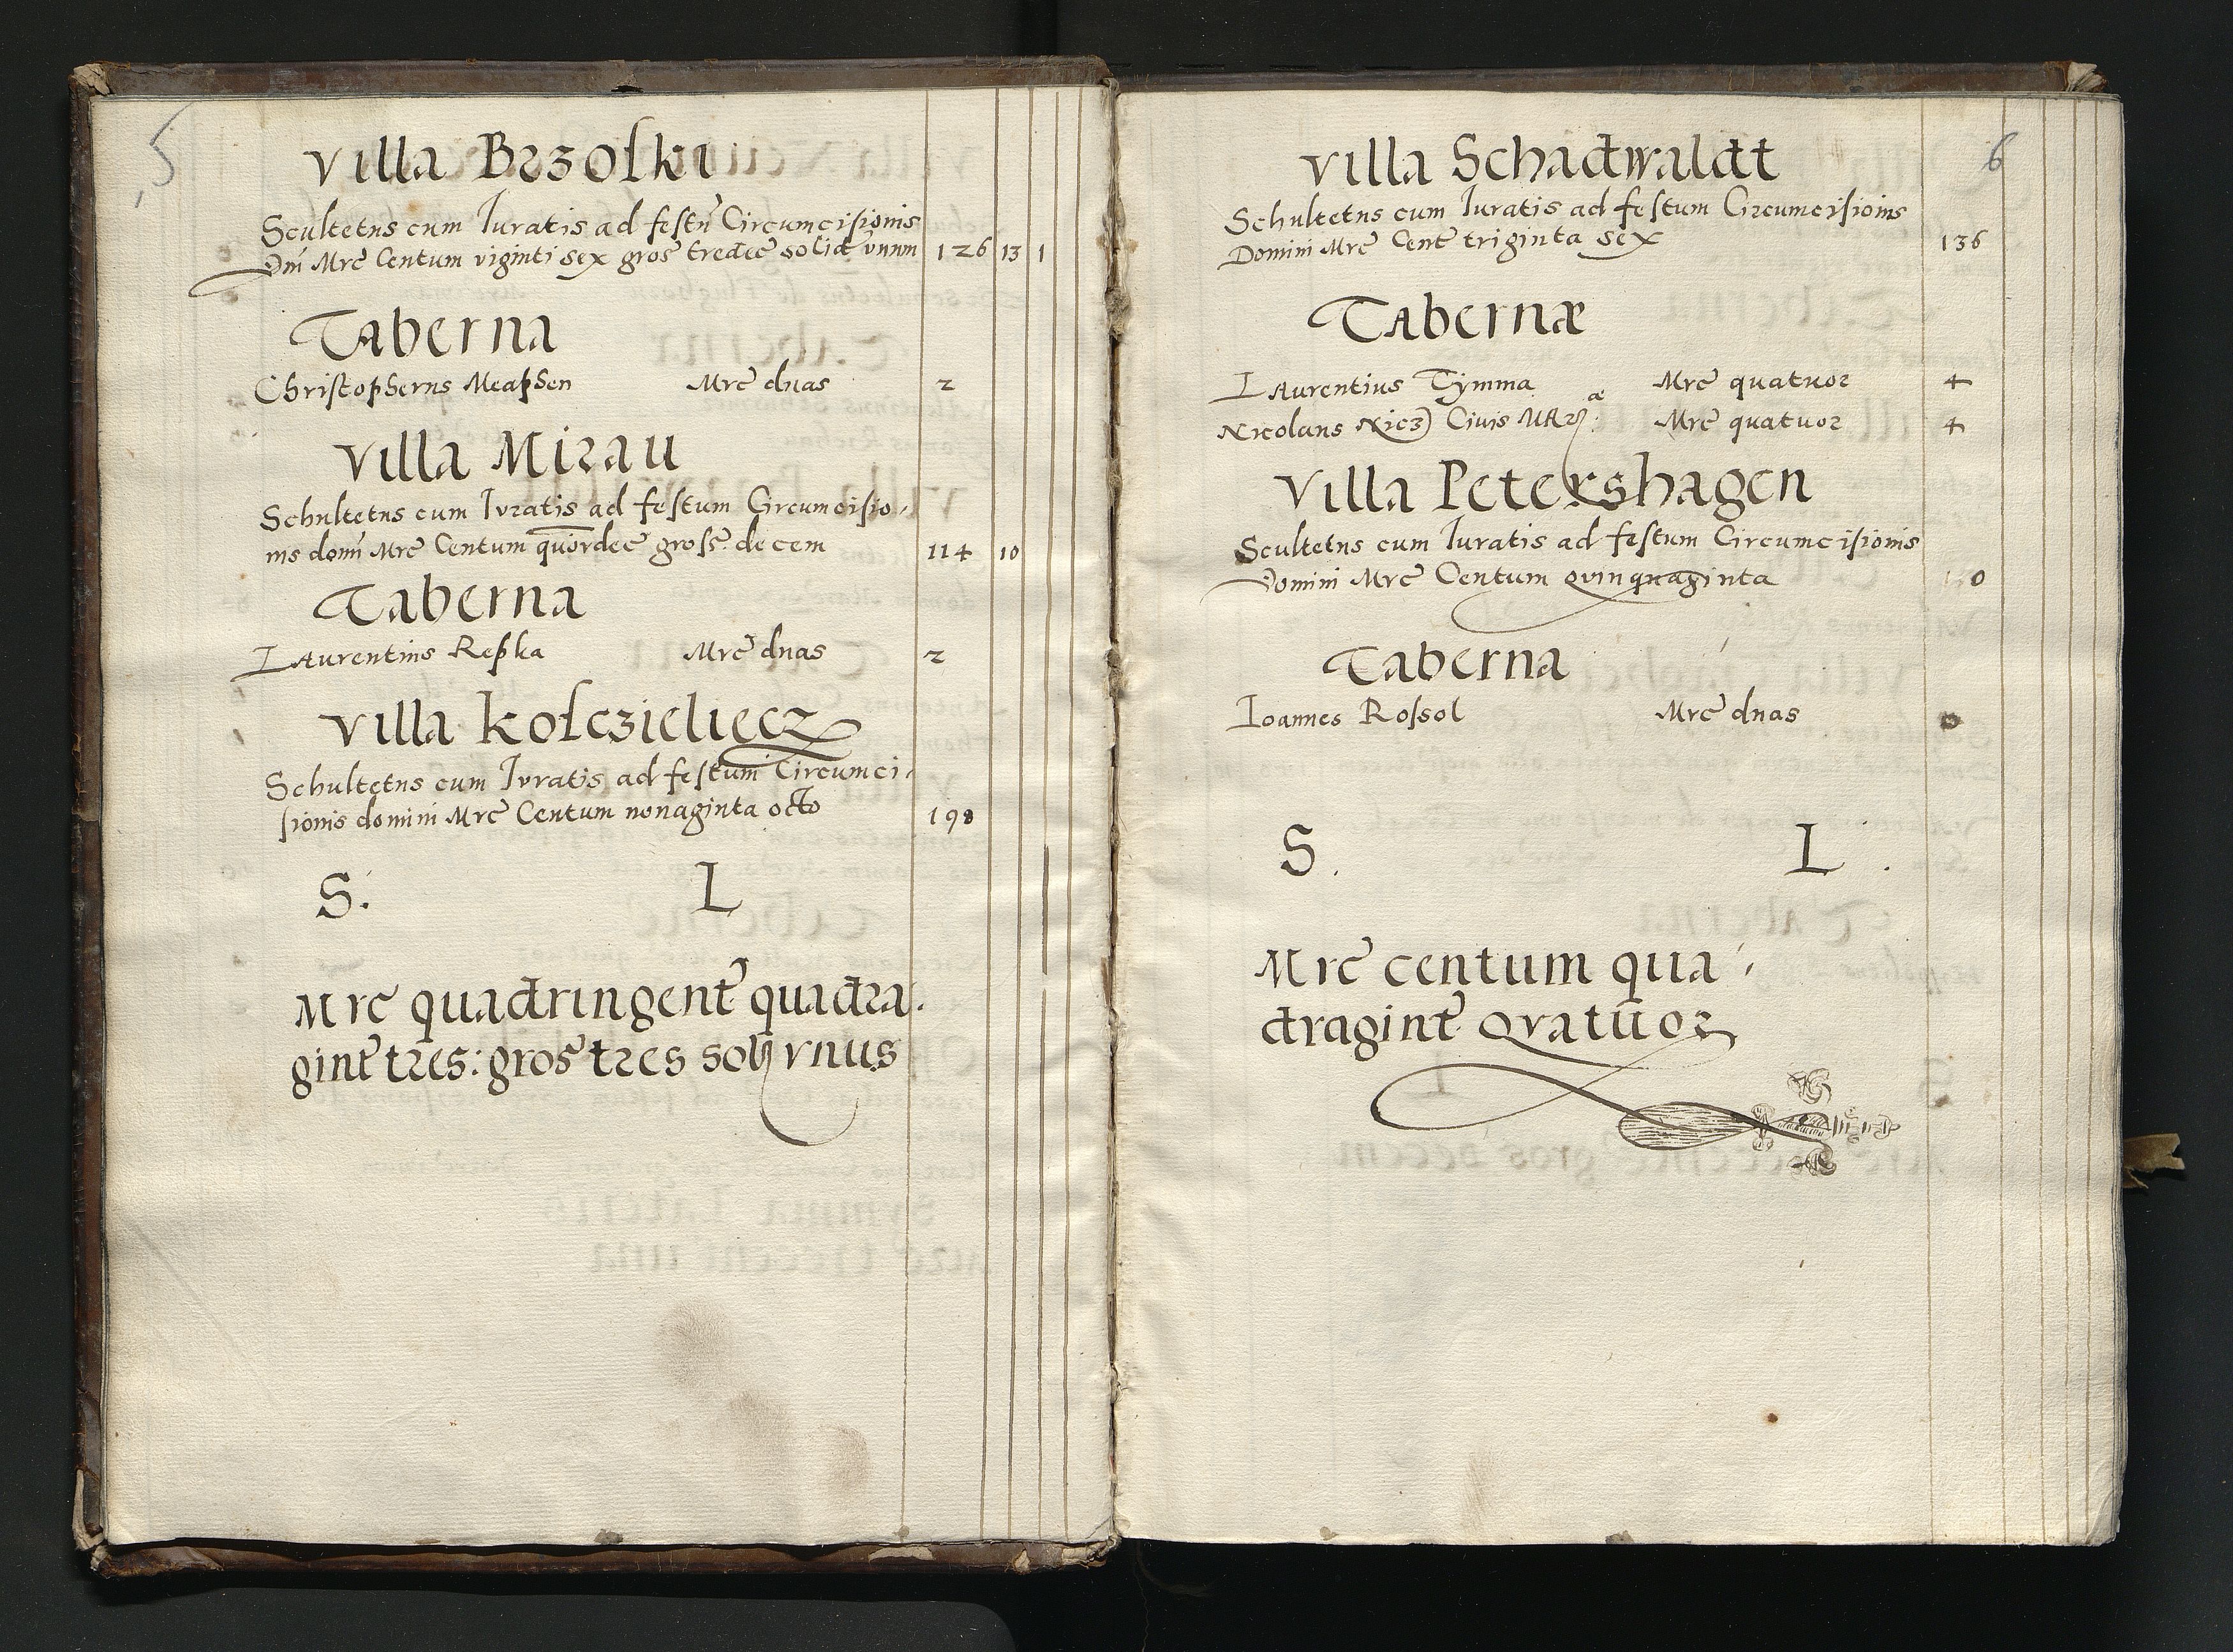 5
Villa Brzoski
Scultetus cum Iuratis ad festũ Circumcisionis
Dñi Mrc̃ Centum viginti sex gros̃ tredec̃ solid̃ vnum 126 13 1
Taberna
Christopherus Meaphen Mrc̃ duas 2
Villa Mirau
Schultetus cum Iuratis ad festum Circumcisio-
nis domĩ Mrc̃ Centum quordec̃ gross: decem 114 10
Taberna
Laurentius Repka Mrc̃ duas 2
Villa Kosczieliecz
Schultetus cum Iuratis ad festum Circumci-
sionis domini Mrc̃ Centum nonaginta octo 198
S. L
Mrc̃ quadringent̃ quadra-
gint̃ tres: gros̃ tres soli vnus
6
Villa Schadwaldt
Schultetus cum Iuratis ad festum Circumcisionis
Domini Mrc̃ Cent̃ triginta sex 136
Tabernæ
Laurentius Tymma Mrc̃ quatuor 4
Nicolaus Nicz Ciuis Mrc̃ quatuor 4
Villa Petershagen
Scultetus cum Iuratis ad festum Circumcisionis
Domini Mrc̃ Centum Quinquaginta 0
Taberna
Ioannes Rossol Mrc̃ duas 0
S. L.
Mrc̃ centum qua-
dragint̃ Quatuor